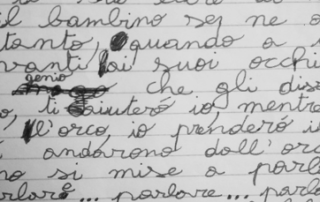 il bambino se ne
tanto, quando a
vanti ai suoi occhi
genio
che gli diss
o, ti aiuterò io, mentre
l'orco, io prenderò i
andarono dall'orc
no si mise a parla
rlare... parlare... parla